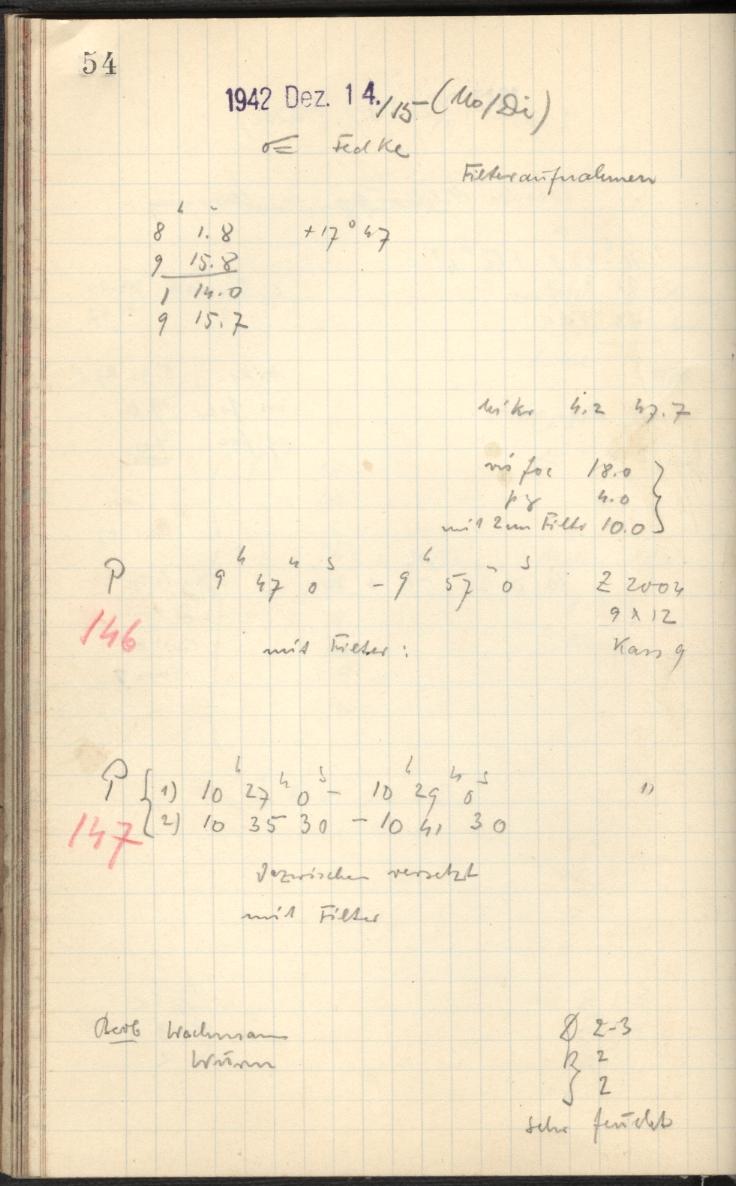 54
1942 Dez. 14./15 (Mo/Di)
Fedke
Filteraufnahmen
h m
8 1.8 +17° 47
9 15.8
1 14.0
9 15.7
mikr 4.2 47.7
vis foc 18.0
pg 4.0
mit 2mm Filter 10.0
P 9h 47m 0s - 9h 57m 0s Z 2004
146 9 x 12
mit Filter: Kass 9
P 1) 10h 27m 0s - 10h 29m 0s "
147 2) 10 35 30 - 10 41 30
Dazwischen versetzt
mit Filter
Beob Wachmann 2-3
Wurm R 2
2
sehr feucht